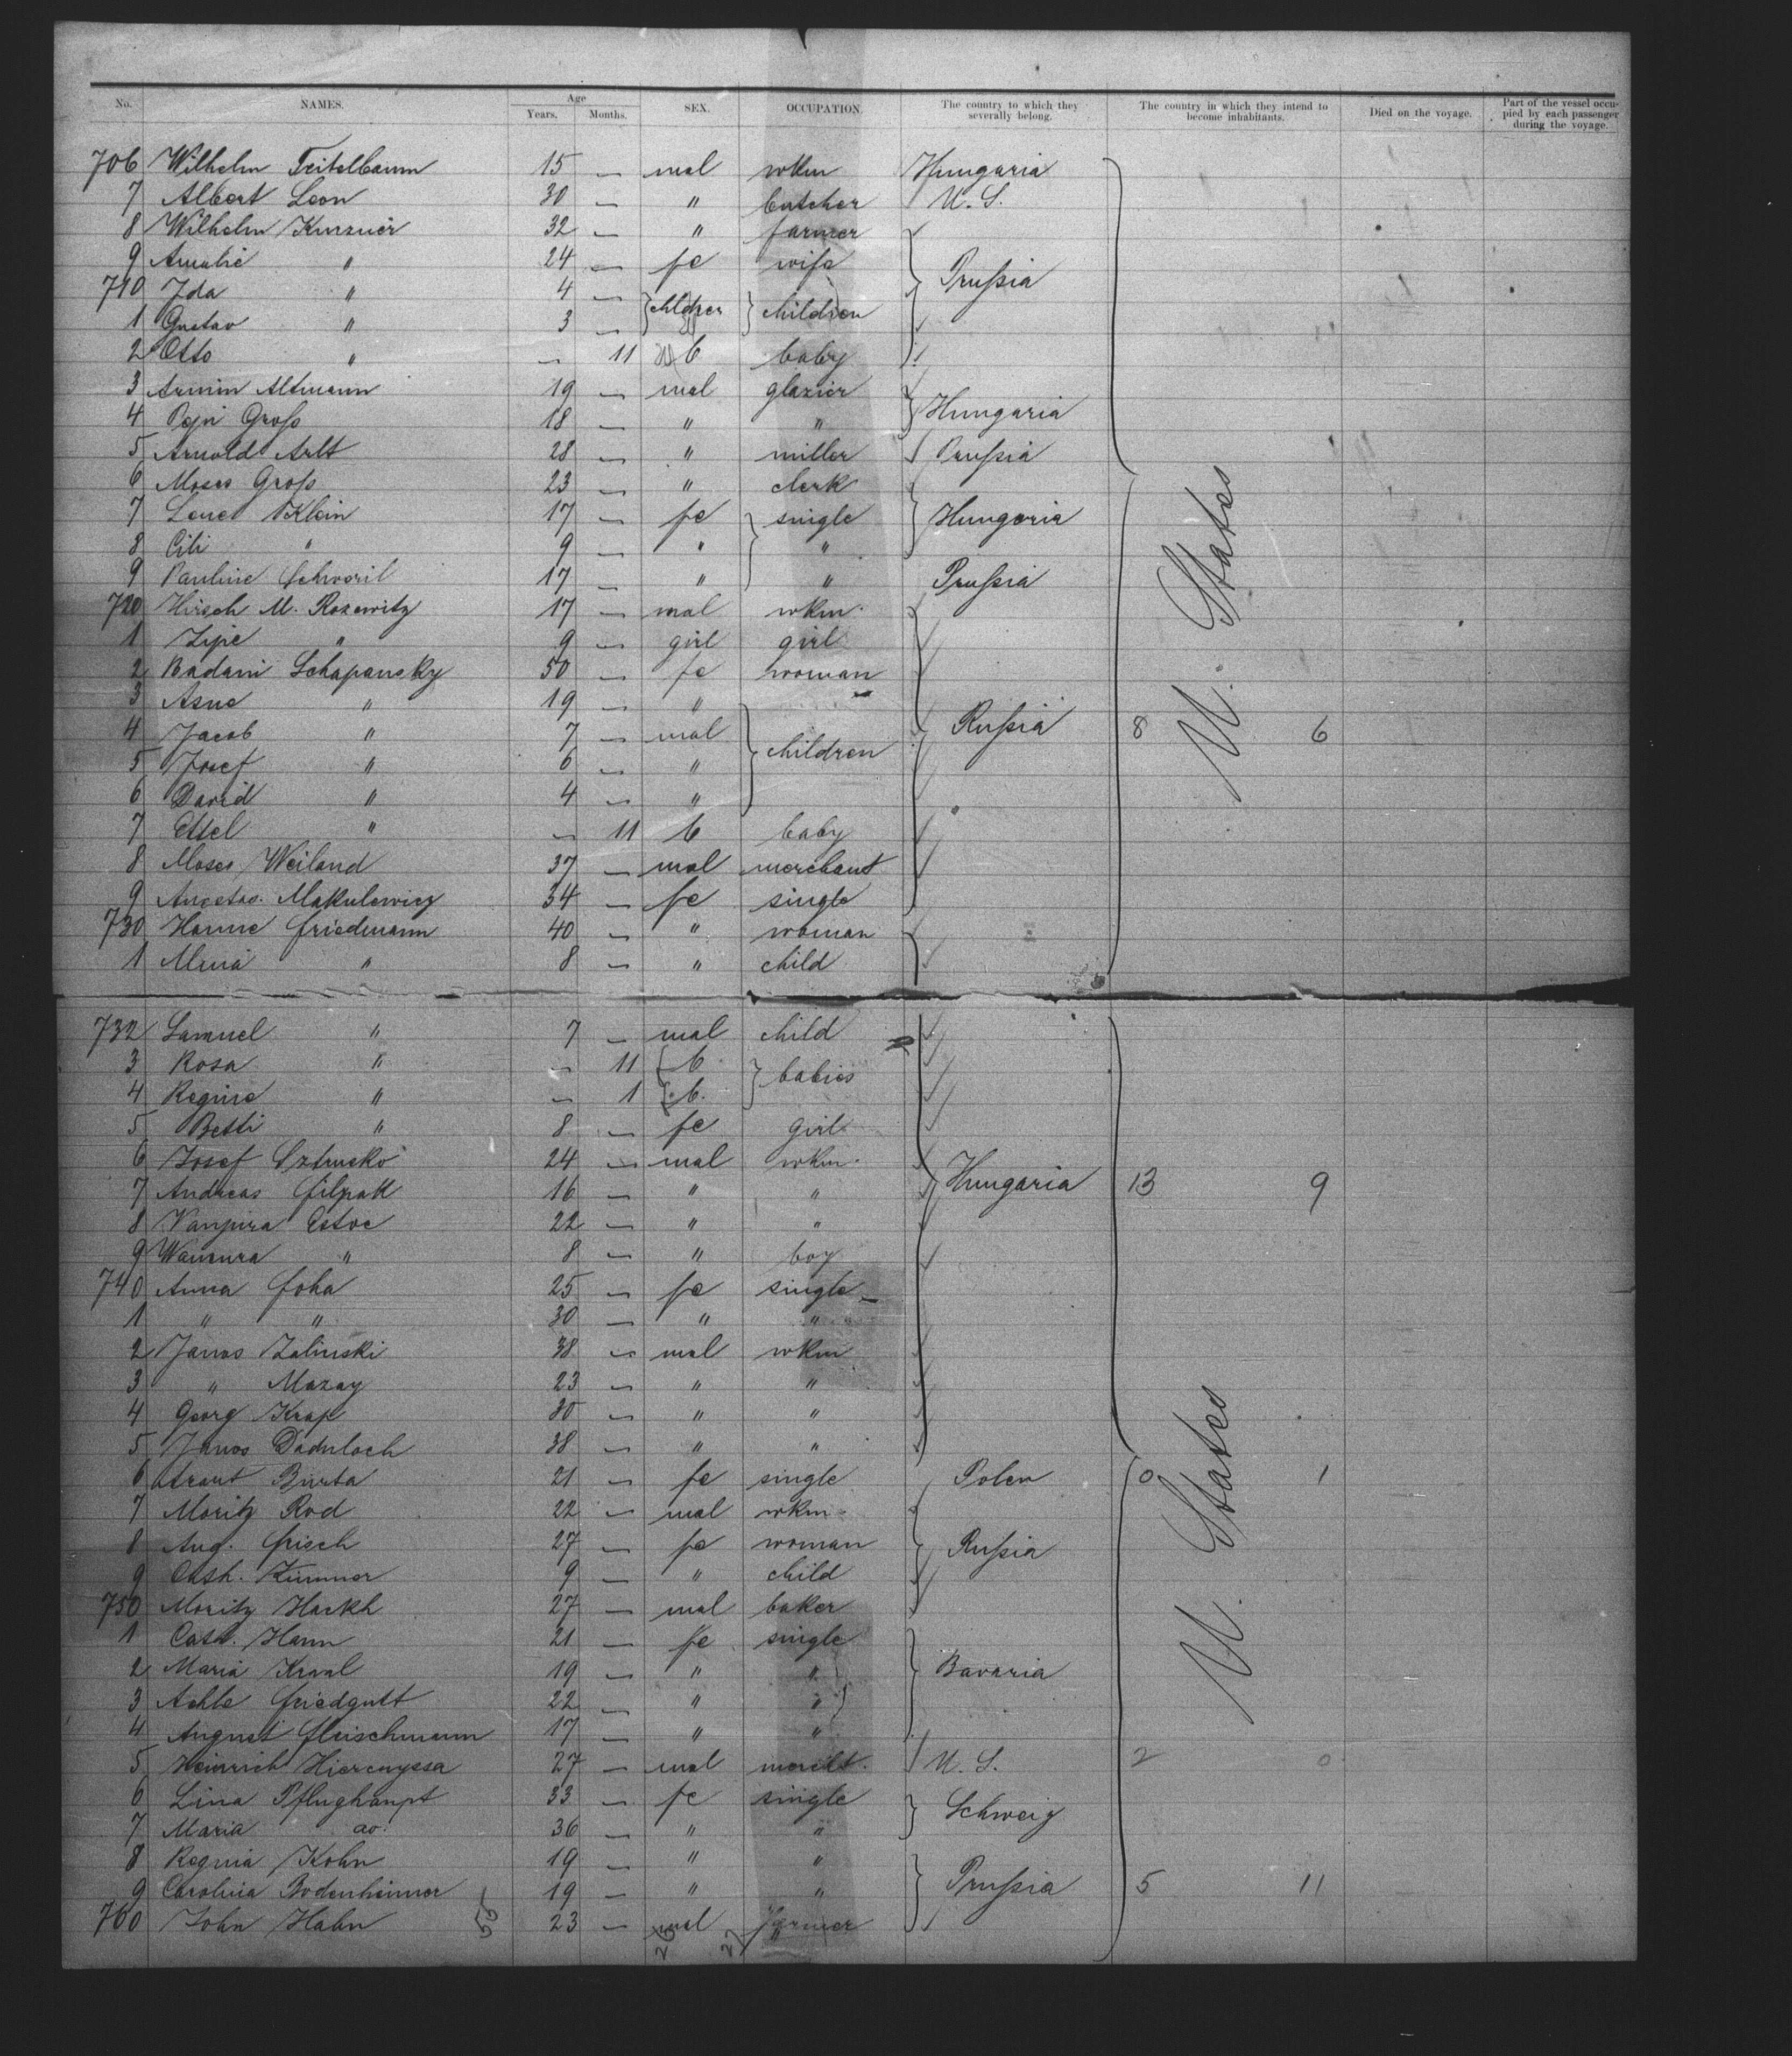 No. NAMES. Age Years. Months. SEX. OCCUPATION. The country to which they severally belong. The country in which they intend to become inhabitants. Died on the voyage. Part of the vessel occupied by each passenger during the voyage.
706 Wilhelm Teitelbaum 15 — mal wkm Hungaria
7 Albert Leon 30 — " butcher U. S.
8 Wilhelm 32 — " farmer
9 Amalie " 24 — fe wife Prußia
710 Ida " 4 — children children
1 Gustav " 3 —
2 Otto " — 11 b baby
3 Armin Altmann 19 — mal glazier Hungaria
4 Groß 18 — " "
5 Arnold Arlt 28 — " miller Prußia
6 Moses Groß 23 — " clerk
7 Klein 17 — fe single Hungaria
8 Cili " 9 — " "
9 Pauline 17 — " " Prußia
720 Hirsch M. Rozewitz 17 — mal wkm.
1 Zipe " 9 — girl girl
2 Schapansky 50 — fe woman
3 " 19 — "
4 Jacob " 7 — mal children Rußia 8 U. States 6
5 Josef " 6 — "
6 David " 4 — "
7 Ettel " — 11 b baby
8 Moses Weiland 37 — mal merchant
9 Makulewicz 34 — fe single
730 Hanne Friedmann 40 — " woman
1 " 8 — " child
732 Samuel " 7 — mal child
3 Rosa " — 11 b. babies
4 Regine " — 1 b.
5 Betti " 8 — fe girl
6 Josef 24 — mal wkm.
7 Andreas Filpak 16 — " " Hungaria 13 9
8 22 — " "
9 " 8 — " boy
740 Anna Foha 25 — fe single
1 " " 30 — " "
2 Janos Zalinski 38 — mal wkm
3 " Mazay 23 — " "
4 Georg Krap 30 — " "
5 Janos 38 — " "
6 21 — fe single Polen 0 1
7 Moritz Rod 22 — mal wkm
8 Aug. Frisch 27 — fe woman Rußia U. States
9 Cath. 9 — " child
750 Moritz Hackh 27 — mal baker
1 Cath. Hann 21 — fe single
2 Maria 19 — " " Bavaria
3 Friedgutt 22 — " "
4 August Fleischmann 17 — " "
5 Heinrich 27 — mal U. S. 2 0
6 Lina Pflughaupt 33 — fe single Schweiz
7 Maria do. 36 — " "
8 Kohn 19 — " "
9 Bodenheimer 19 — " " Prußia 5 11
760 John Hahn 55 23 — mal farmer
26